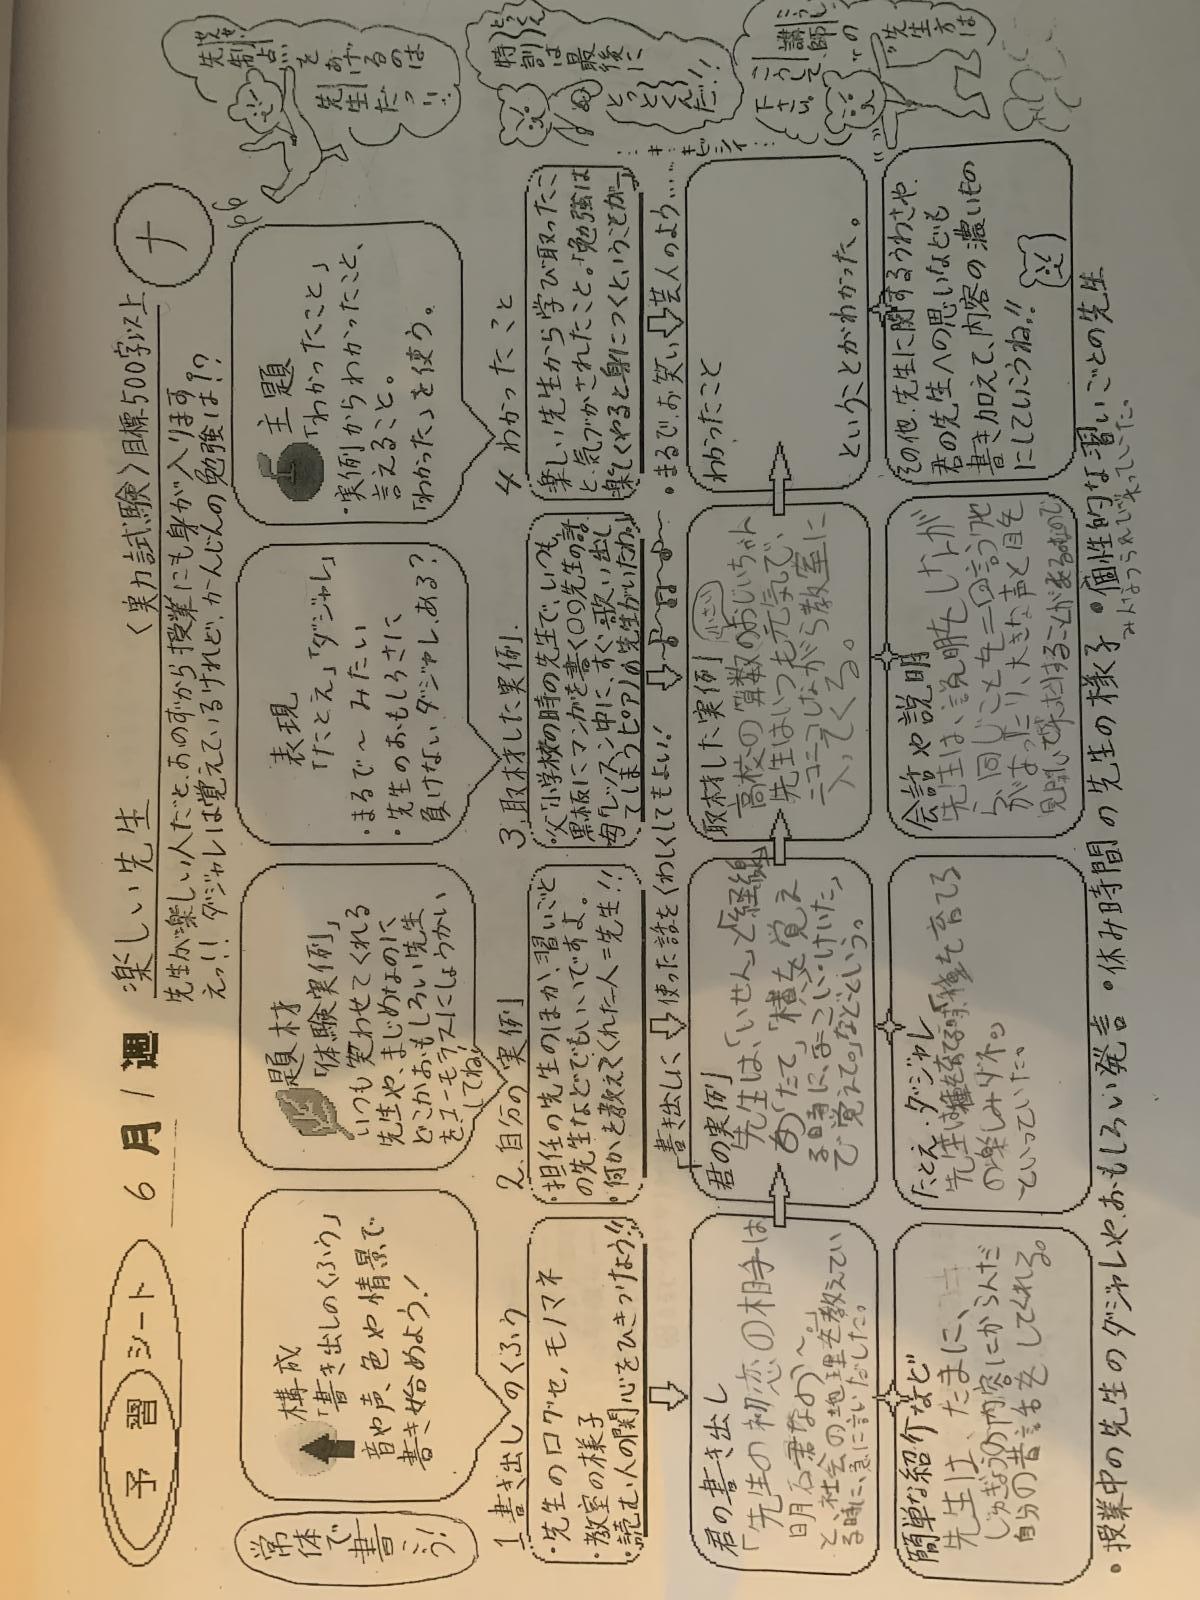 予習シート
6月1週
楽しい先生
〈実力試験〉目標500字以上
ナ
先生が楽しい人だと、おのずから授業にも身が入ります
えっ!! ダジャレは覚えているけれど、かんじんの勉強は!?
常体で書こう!
構成
「書き出しのくふう」
音や声、色や情景で
書き始めよう!
題材
「体験実例」
いつも笑わせてくれる
先生や、まじめなのに
どこかおもしろい先生
をユーモラスにしょうかい
してね!
表現
「たとえ」「ダジャレ」
・まるで〜みたい
・先生のおもしろさに
負けないダジャレ、ある?
主題
「わかったこと」
・実例からわかったこと、
言えること。
「わかった」を使う。
1 書き出しのくふう
・先生の口グセ、モノマネ
・教室の様子
・読む人の関心をひきつけよう!!
2、自分の実例
・担任の先生のほか、習いごと
の先生などでもいいですよ。
・何かを教えてくれた人=先生!!
3、取材した実例
・父「小学校の時の先生で、いつも
黒板にマンガを書く〇〇先生の話
・母「レッスン中に、すぐ歌い出し
てしまうピアノの先生がいたわ。」
4 わかったこと
楽しい先生から学び取ったこ
と、気づかされたこと。「勉強は
楽しくやると身につくということが〜」
「書き出し」に使った話をくわしくしてもよい!
・まるで、お笑い芸人のよう……
君の書き出し
「先生の初恋の相手は
明石君なの〜。」
と、社会の地理を教えてい
る時に、急に言いだした。
君の実例
先生は、「いせん」と「経線」
の「たて」「横」を覚え
る時に、「よこい・けいた」
で覚えて。」などという。
取材した実例
高校の算数のおじいちゃん
小さい
先生はいつも元気で、
ニコニコしながら教室に
入ってくる。
わかったこと
ということがわかった。
簡単な紹介など
先生は、たまに、
じゅぎょうの内容にからんだ
自分の昔話をしてくれる。
たとえ・ダジャレ
先生は「種を育てる
の楽しみダネ。」
といっていた。
会話や説明
先生は、説明をしたが
ら、同じことを二回言うくせ
があったり、大きな声と目を
見開いて
その他、先生に関するうわさや、
君の先生への思いなども
書き加えて、内容の濃いもの
にしていこうね!!
・授業中の先生のダジャレや、おもしろい発言 ・休み時間の先生の様子 ・個性的な習いごとの先生
先制点をあげるのは
先生だっ!!
特訓は最後に
とっとくんだ!!
キビシイ
こうして、講師
下さい。
先生方は